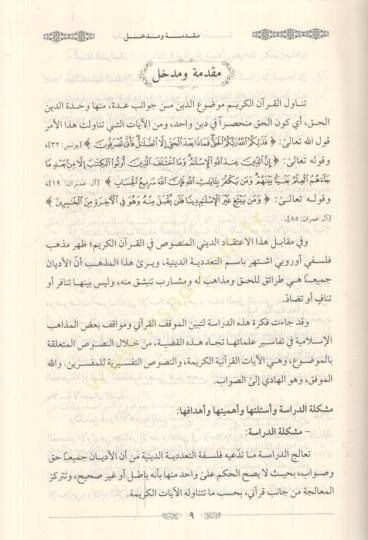 مقدمـــة ومدخـــل
مقدمة ومدخل
تناول القرآن الكريم موضوع الدين من جوانب عدة، منها وحدة الدين
الحق، أي كون الحق منحصراً في دين واحد، ومن الآيات التي تناولت هذا الأمر
قول الله تعالى: ﴿فَذَٰلِكُمُ ٱللَّهُ رَبُّكُمُ ٱلْحَقُّ فَمَاذَا بَعْدَ ٱلْحَقِّ إِلَّا ٱلضَّلَٰلُ فَأَنَّىٰ تُصْرَفُونَ﴾ [يونس: ٣٢]،
وقوله تعالى: ﴿إِنَّ ٱلدِّينَ عِندَ ٱللَّهِ ٱلْإِسْلَٰمُ وَمَا ٱخْتَلَفَ ٱلَّذِينَ أُوتُوا۟ ٱلْكِتَٰبَ إِلَّا مِنۢ بَعْدِ مَا
جَآءَهُمُ ٱلْعِلْمُ بَغْيًۢا بَيْنَهُمْ وَمَن يَكْفُرْ بِـَٔايَٰتِ ٱللَّهِ فَإِنَّ ٱللَّهَ سَرِيعُ ٱلْحِسَابِ﴾ [آل عمران: ١٩]،
وقوله تعالى: ﴿وَمَن يَبْتَغِ غَيْرَ ٱلْإِسْلَٰمِ دِينًا فَلَن يُقْبَلَ مِنْهُ وَهُوَ فِى ٱلْءَاخِرَةِ مِنَ ٱلْخَٰسِرِينَ﴾
[آل عمران: ٨٥].
وفي مقابل هذا الاعتقاد الديني المنصوص في القرآن الكريم؛ ظهر مذهب
فلسفي أوروبي اشتهر باسم التعددية الدينية، ويرى هذا المذهب أنّ الأديان
جميعاً هي طرائق للحق ومذاهب له ومشارب تنبثق منه، وليس بينها تنافر أو
تنافٍ أو تضادّ.
وقد جاءت فكرة هذه الدراسة لتبين الموقف القرآني ومواقف بعض المذاهب
الإسلامية في تفاسير علمائها تجاه هذه القضية، من خلال النصوص المتعلقة
بالموضوع، وهي الآيات القرآنية الكريمة، والنصوص التفسيرية للمفسرين. والله
الموفق، وهو الهادي إلى الصواب.
مشكلة الدراسة وأسئلتها وأهميتها وأهدافها:
- مشكلة الدراسة:
تعالج الدراسة ما تدّعيه فلسفة التعددية الدينية من أن الأديان جميعاً حق
وصواب، بحيث لا يصح الحكم على واحد منها بأنه باطل أو غير صحيح، وتتركز
المعالجة من جانب قرآني، بحسب ما تتناوله الآيات الكريمة.
٩